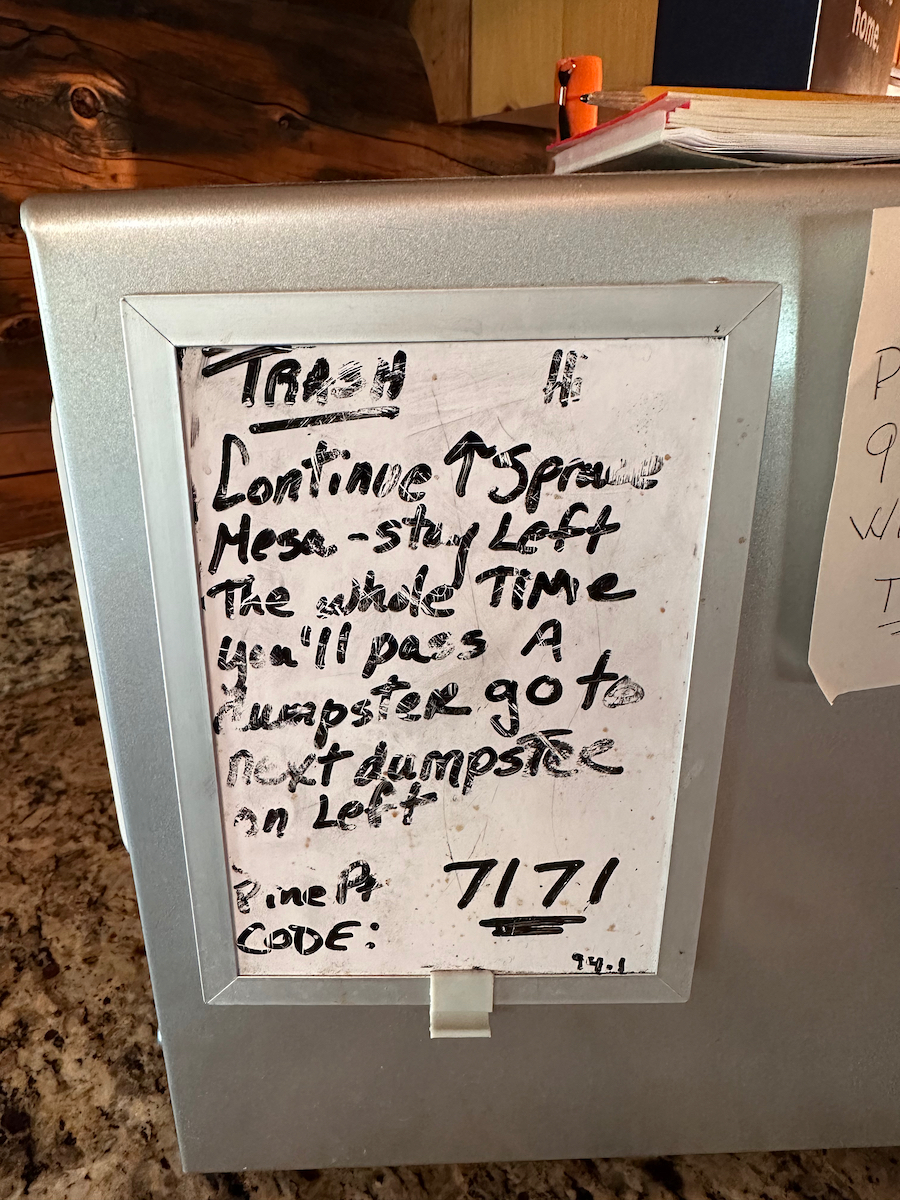 home.
TRASH Hi
Continue ↑ Spruce
Mesa - stay Left
The whole TIME
you'll pass A
dumpster go to
next dumpster
on Left
Pine Pt 7171
CODE:
P
9
T